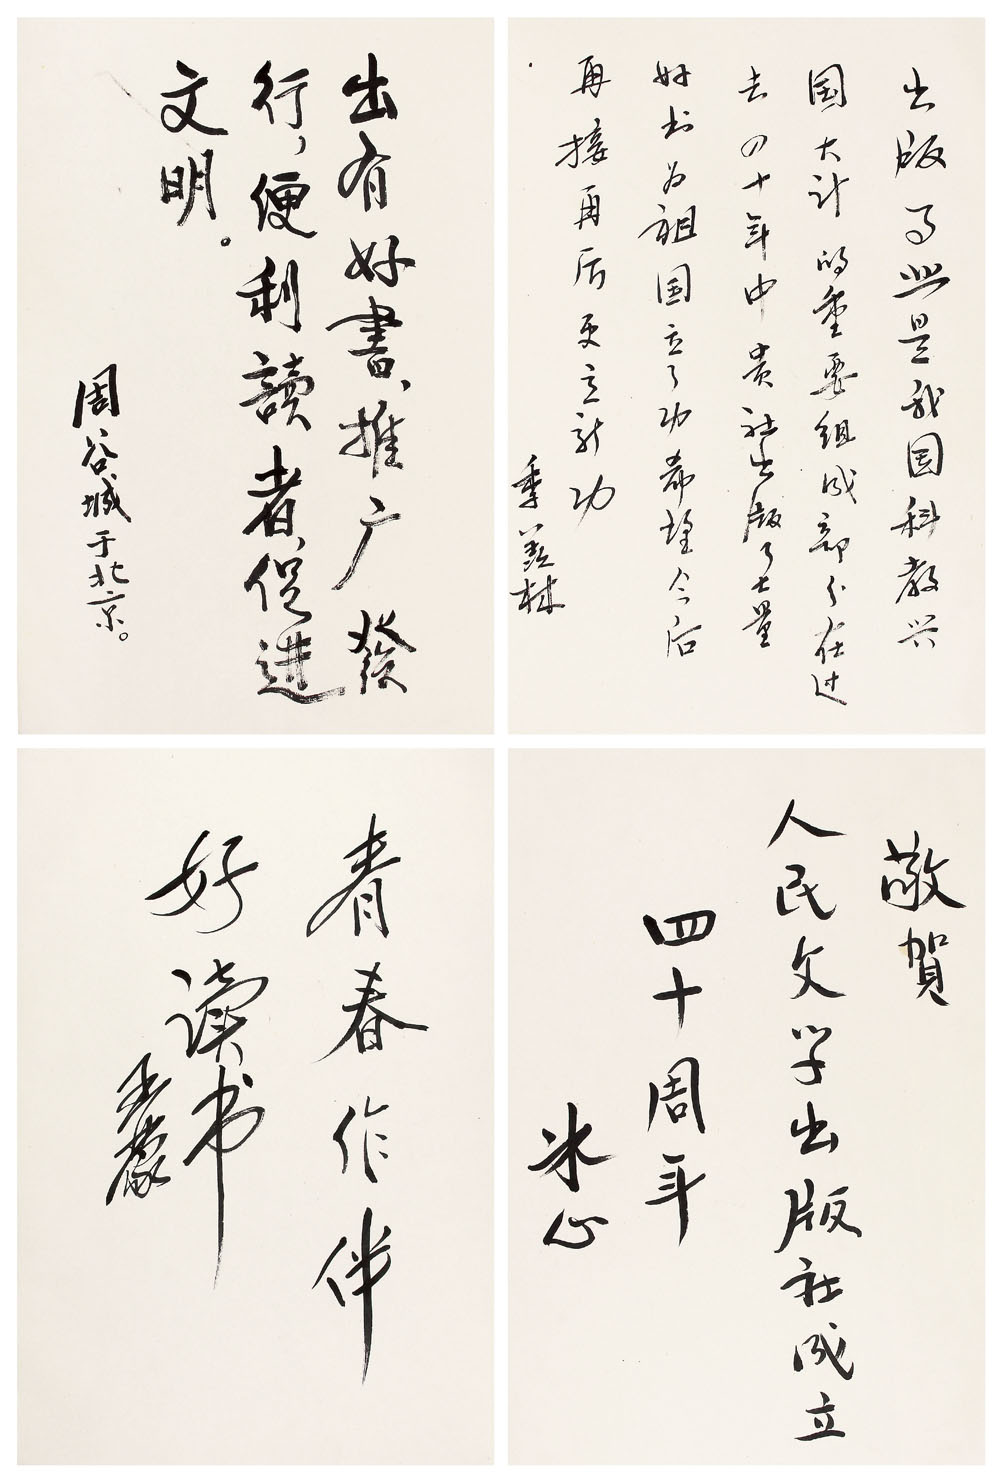 出有好書、推广發
行，便利讀者，促進
文明。
周谷城于北京。
出版事业是我国科教兴
国大计的重要组成部分在过
去四十年中贵社出版了大量
好书为祖国立了功希望今后
再接再厉更立新功
季羡林
青春作伴
好读书
王蒙
敬賀
人民文学出版社成立
四十周年
冰心